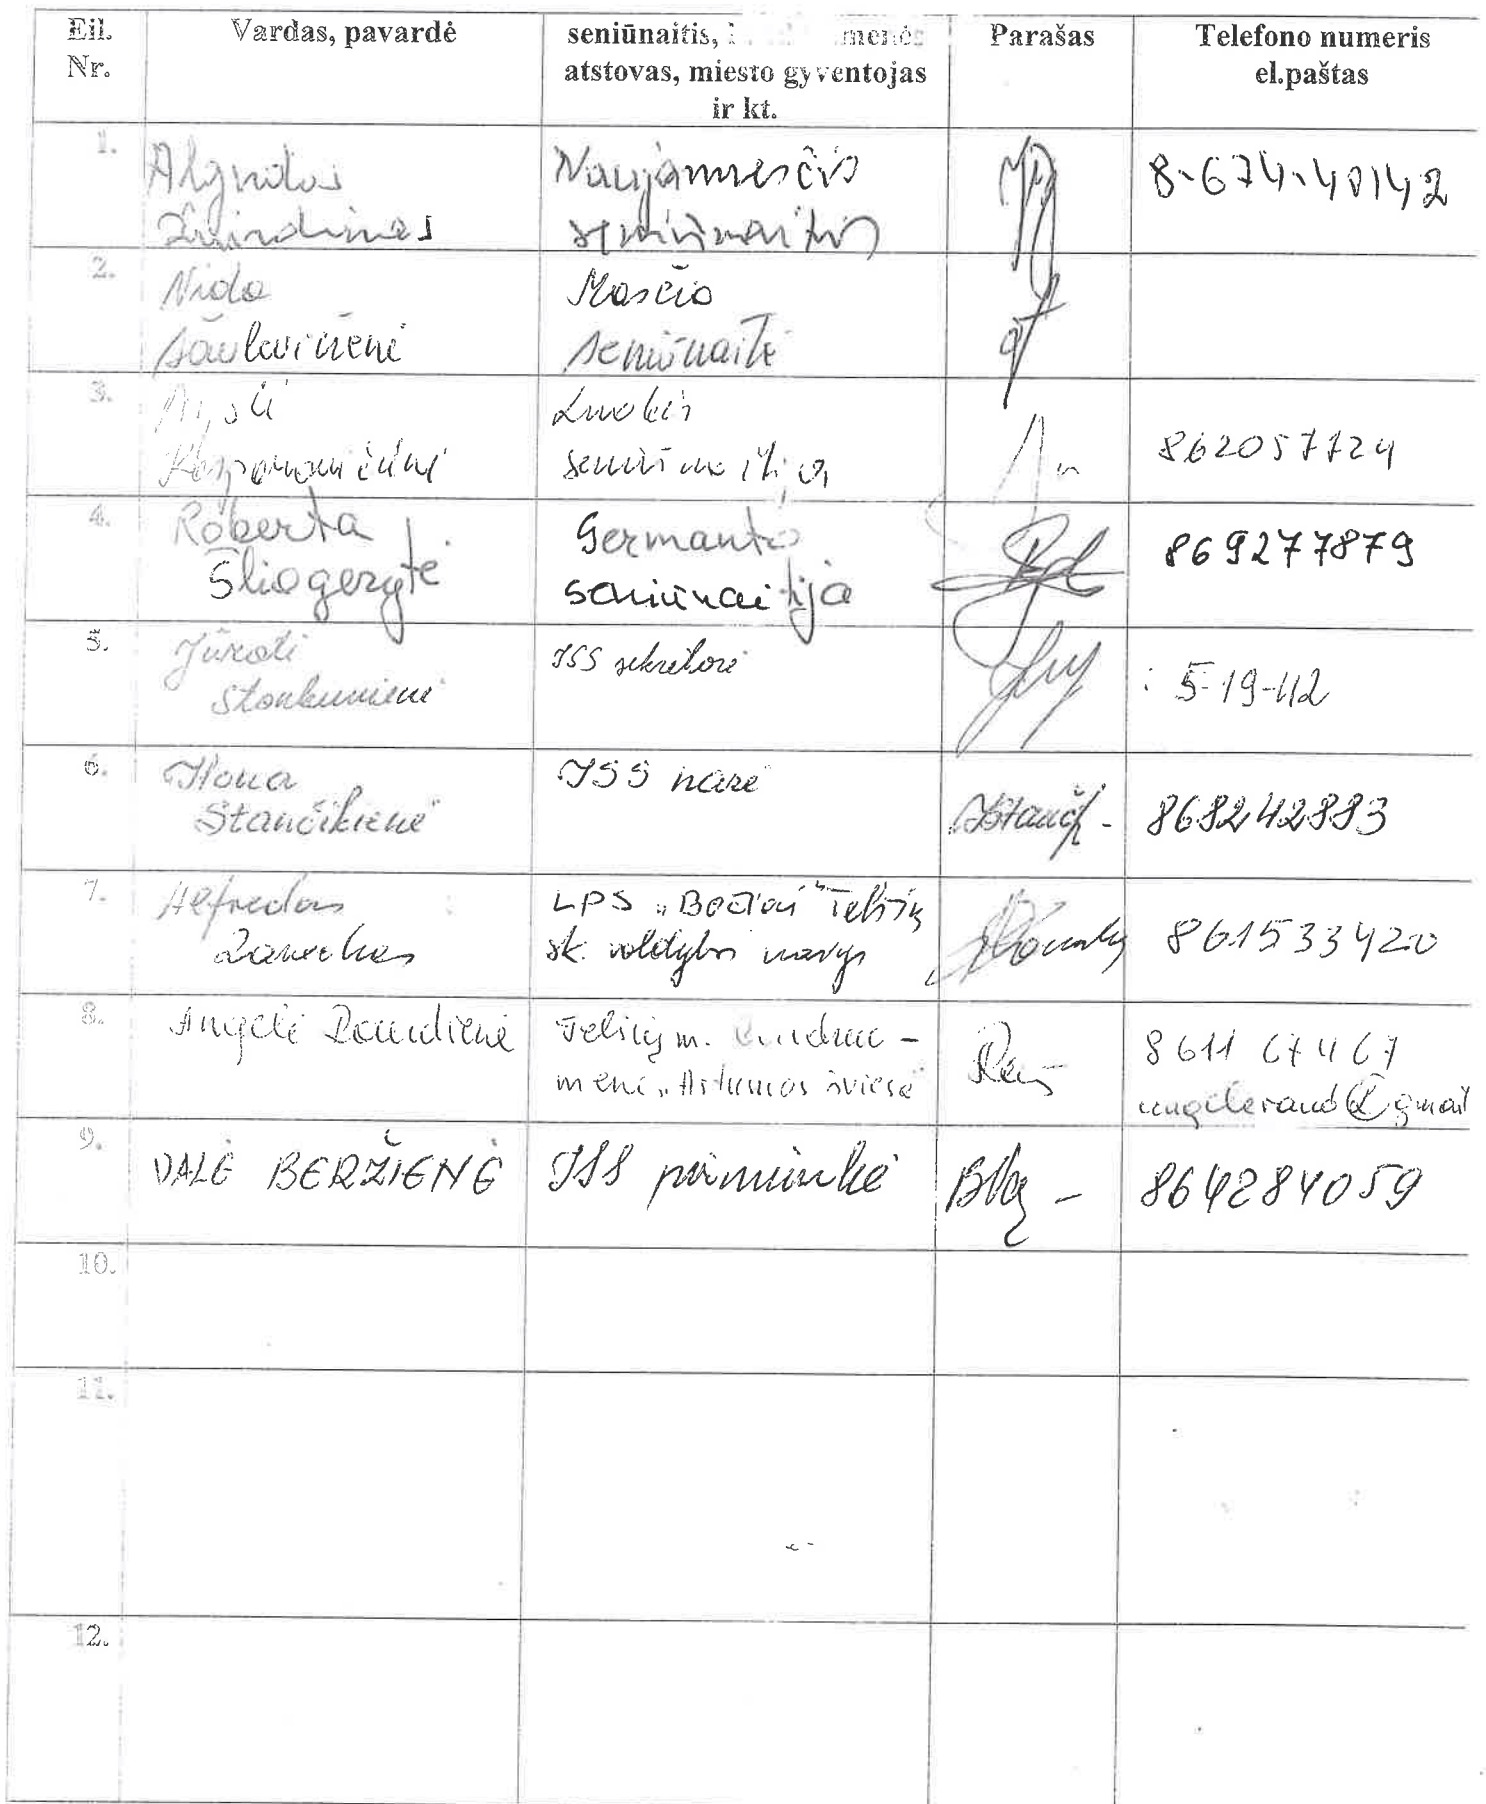 Eil. Nr.
Vardas, pavardė
seniūnaitis,
atstovas, miesto gyventojas
ir kt.
Parašas
Telefono numeris
el.paštas
1.
Naujamiesčio
8-674-40142
2.
Nida
Masčio
seniūnaitė
3.
862057724
4.
Roberta
Šliogerytė
Germanto
seniūnaitija
869277879
5.
Jūratė
Stonkuvienė
JSS sekretorė
5-19-42
6.
Ilona
Stančikienė
JSS narė
868242883
7.
Alfredas
LPS „Bočiai" Telšių
sk. valdybos narys
861533420
8.
Angelė Raudienė
Telšių m. bendruo-
menė „Artumos šviesa"
8611 67467
angeleraud@gmail
9.
VALĖ BERŽIENĖ
JSS pirmininkė
864284059
10.
11.
12.